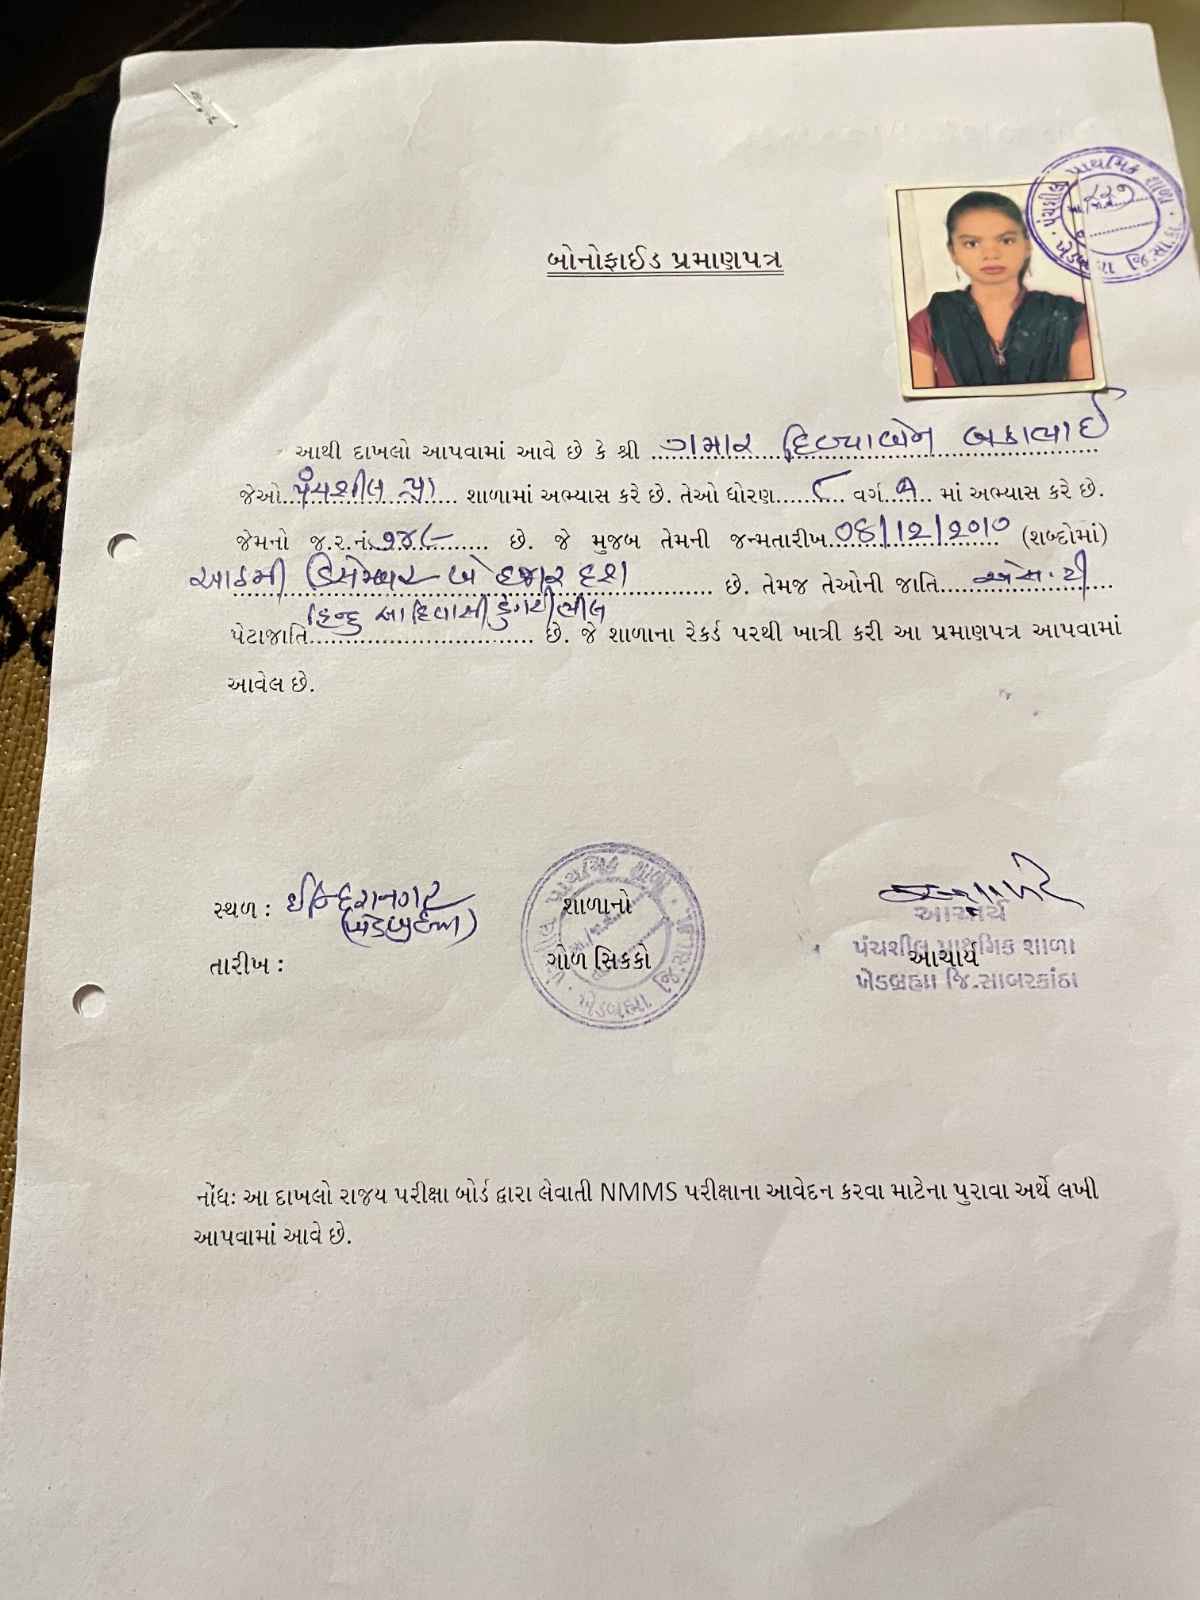 પંચશીલ પ્રાથમિક શાળા
ખેડબ્રહ્મા જિ.સા.કાં.
બોનોફાઈડ પ્રમાણપત્ર
આથી દાખલો આપવામાં આવે છે કે શ્રી ગમાર દિવ્યાબેન બકાભાઈ
જેઓ પંચશીલ પ્રા શાળામાં અભ્યાસ કરે છે. તેઓ ધોરણ ૮ વર્ગ A માં અભ્યાસ કરે છે.
જેમનો જ.ર.નં. છે. જે મુજબ તેમની જન્મતારીખ (શબ્દોમાં)
આઠમી ડિસેમ્બર બે હજાર દશ છે. તેમજ તેઓની જાતિ એસ.ટી
હિન્દુ આદિવાસી ડુંગરીભીલ
પેટાજાતિ છે. જે શાળાના રેકર્ડ પરથી ખાત્રી કરી આ પ્રમાણપત્ર આપવામાં
આવેલ છે.
સ્થળ : ઈન્દિરાનગર
(ખેડબ્રહ્મા)
તારીખ :
શાળાનો
ગોળ સિક્કો
પ્રાથમિક શાળા
ખેડબ્રહ્મા જિ.સા.કાં.
આચાર્ય
પંચશીલ પ્રાથમિક શાળા
આચાર્ય
ખેડબ્રહ્મા જિ.સાબરકાંઠા
નોંધ: આ દાખલો રાજ્ય પરીક્ષા બોર્ડ દ્વારા લેવાતી NMMS પરીક્ષાના આવેદન કરવા માટેના પુરાવા અર્થે લખી
આપવામાં આવે છે.